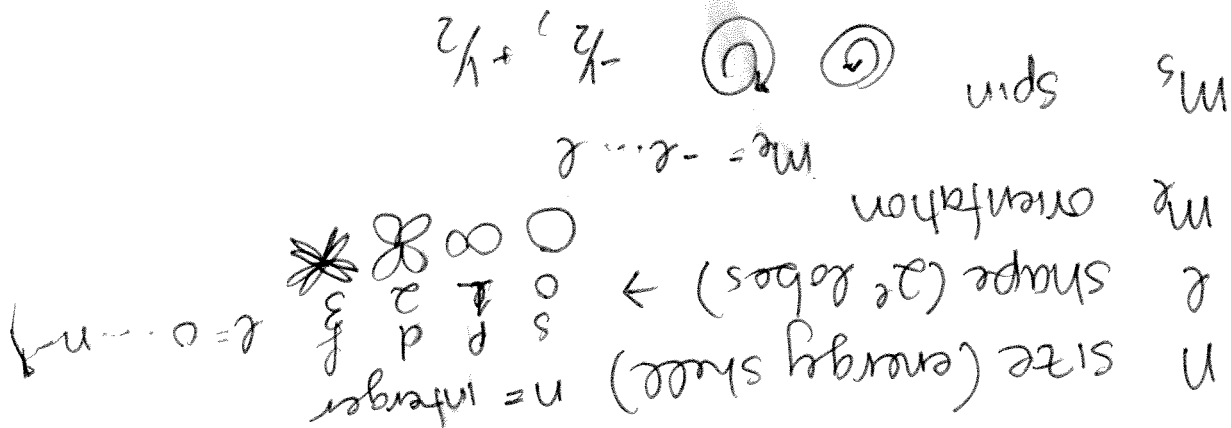 n size (energy shell) n = interger
s p d f
l shape (2^l lobes) → 0 1 2 3 l = 0 ... n-1
m_l orientation
m_l = -l ... l
m_s spin -1/2, +1/2